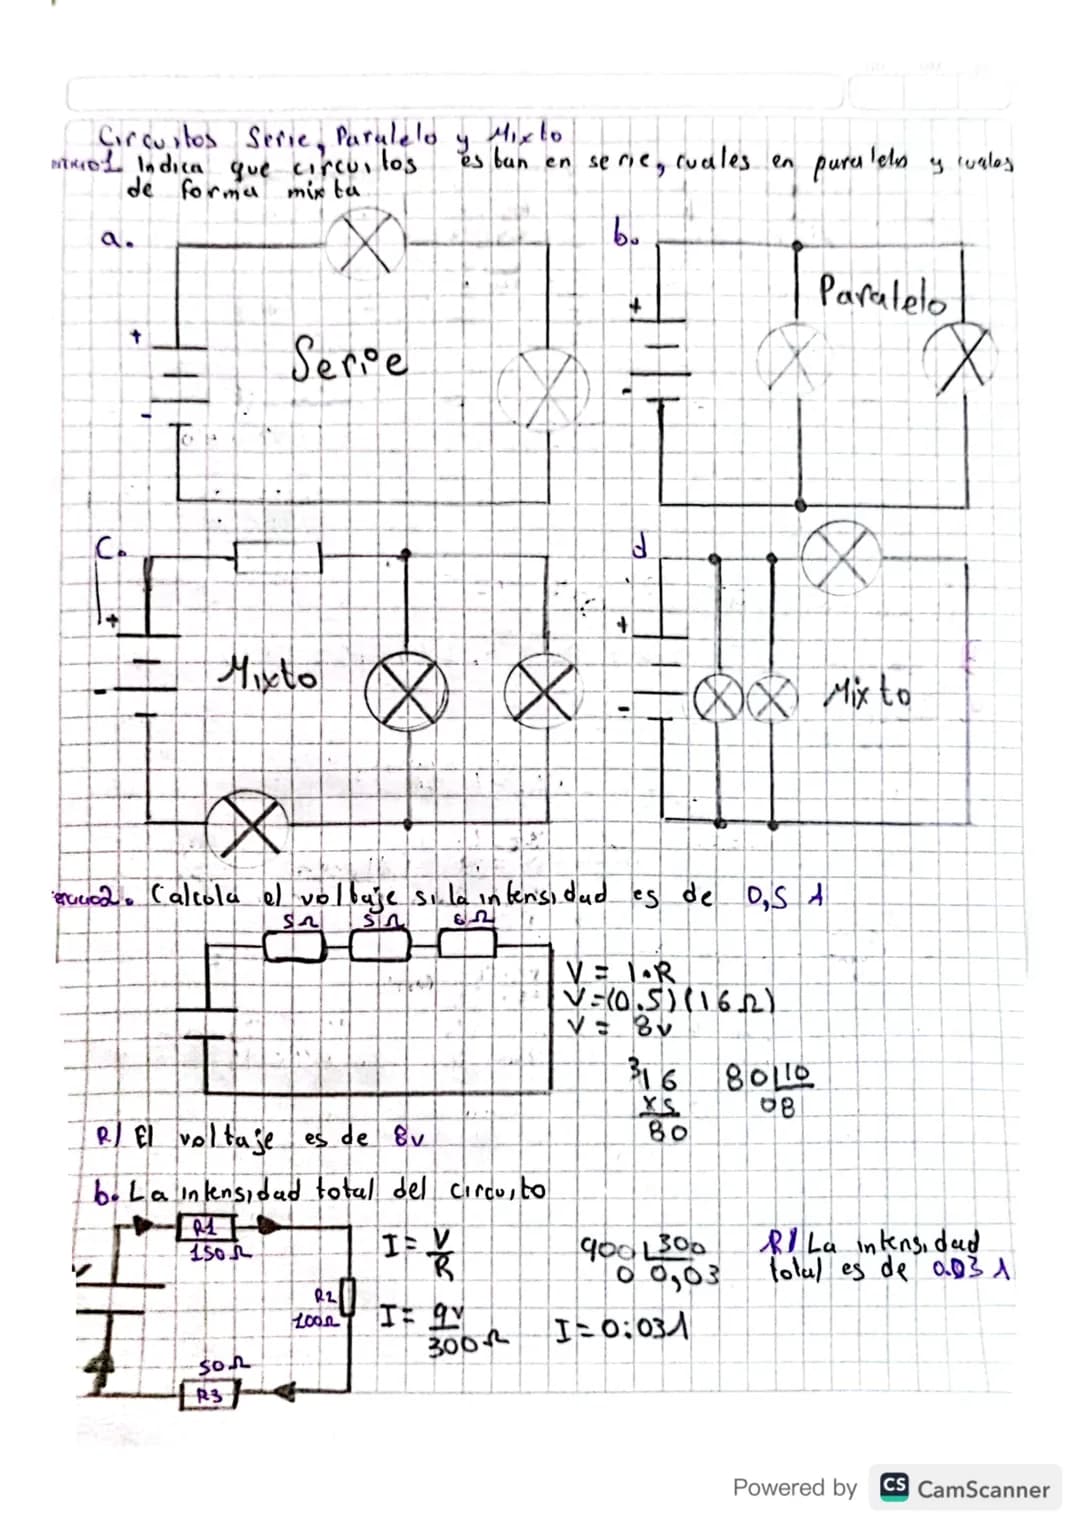 Circuitos Serie, Paralelo y Mixto
1 Indica que circuitos estan en serie, cuales en paralelo y cuales
de forma mixta
a.
b.
+
-
Serie
+
-
Paralelo
c.
d
+
-
Mixto
+
-
Mixto
2. Calcola el voltaje si la intensidad es de 0,5 A
5Ω 5Ω 6Ω
V = I.R
V=(0.5)(16Ω)
V = 8v
³16
x5
80
80 10
08
R/ El voltaje es de 8v
b. La intensidad total del circuito
R1
150Ω
R2
100Ω
50Ω
R3
I = V
R
I = 9v
300Ω
900 300
0 0,03
I=0:03A
R/ La intensidad
total es de 0.03 A
Powered by CS CamScanner